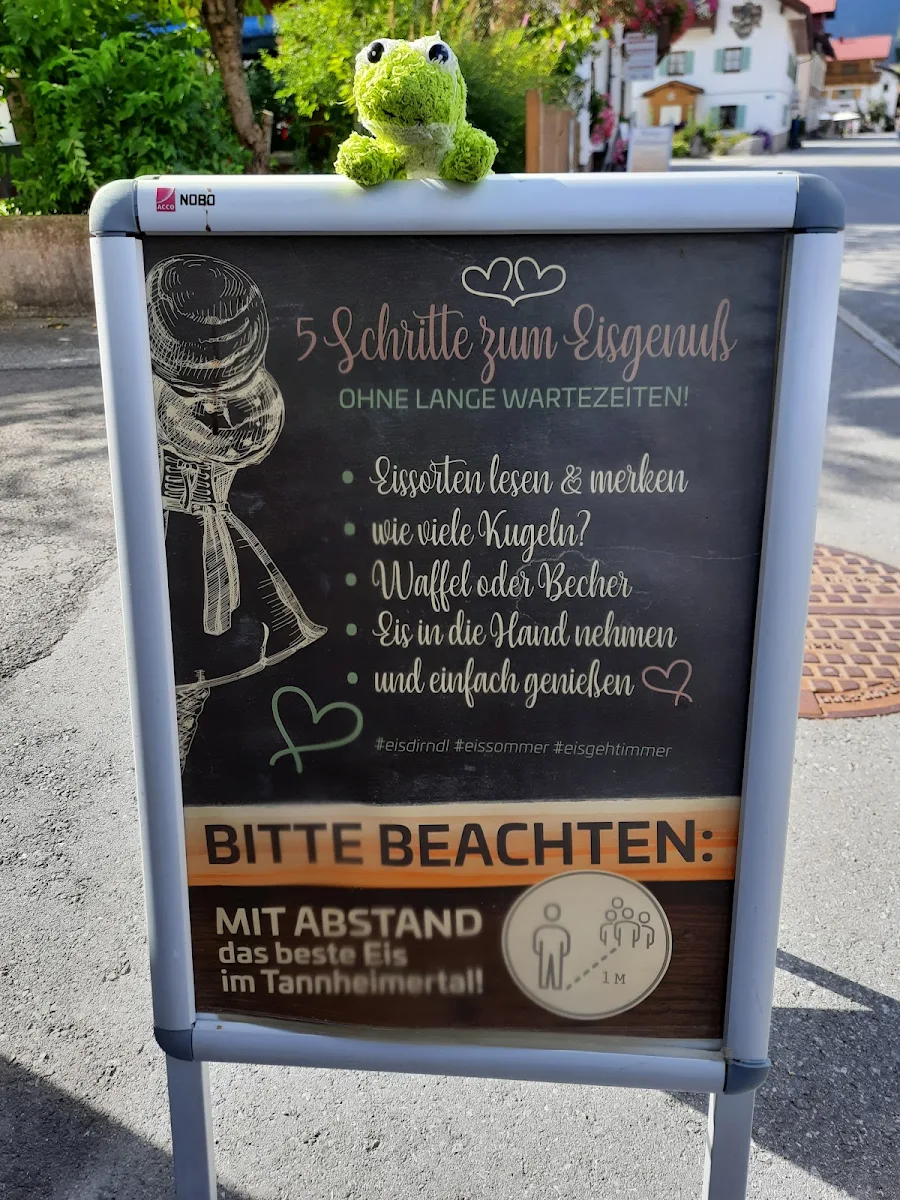 ACCO NOBO
5 Schritte zum Eisgenuß
OHNE LANGE WARTEZEITEN!
• Eissorten lesen & merken
• wie viele Kugeln?
• Waffel oder Becher
• Eis in die Hand nehmen
• und einfach genießen
#eisdirndl #eissommer #eisgehtimmer
BITTE BEACHTEN:
MIT ABSTAND
das beste Eis
im Tannheimertal!
1 M